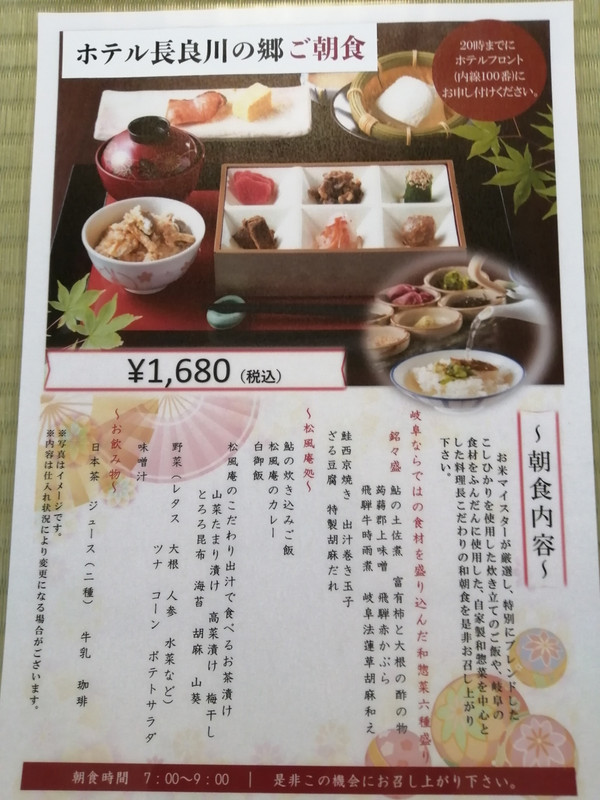 ホテル長良川の郷ご朝食
20時までに
ホテルフロント
(内線100番)に
お申し付けください。
¥1,680（税込）
～朝食内容～
お米マイスターが厳選し、特別にブレンドした
こしひかりを使用した炊き立てのご飯や、岐阜の
食材をふんだんに使用した、自家製和惣菜を中心と
した料理長こだわりの和朝食を是非お召し上がり
下さい。
岐阜ならではの食材を盛り込んだ和惣菜六種盛り
銘々盛　鮎の土佐煮　富有柿と大根の酢の物
蒟蒻郡上味噌　飛騨赤かぶら
飛騨牛時雨煮　岐阜法蓮草胡麻和え
鮭西京焼き　出汁巻き玉子
ざる豆腐　特製胡麻だれ
～松風庵処～
鮎の炊き込みご飯
松風庵のカレー
白御飯
松風庵のこだわり出汁で食べるお茶漬け
山菜たまり漬け　高菜漬け　梅干し
とろろ昆布　海苔　胡麻　山葵
野菜（レタス　大根　人参　水菜など）
ツナ　コーン　ポテトサラダ
味噌汁
～お飲み物～
日本茶　ジュース（二種）　牛乳　珈琲
※写真はイメージです。
※内容は仕入れ状況により変更になる場合がございます。
朝食時間　7：00～9：00　｜　是非この機会にお召し上がり下さい。